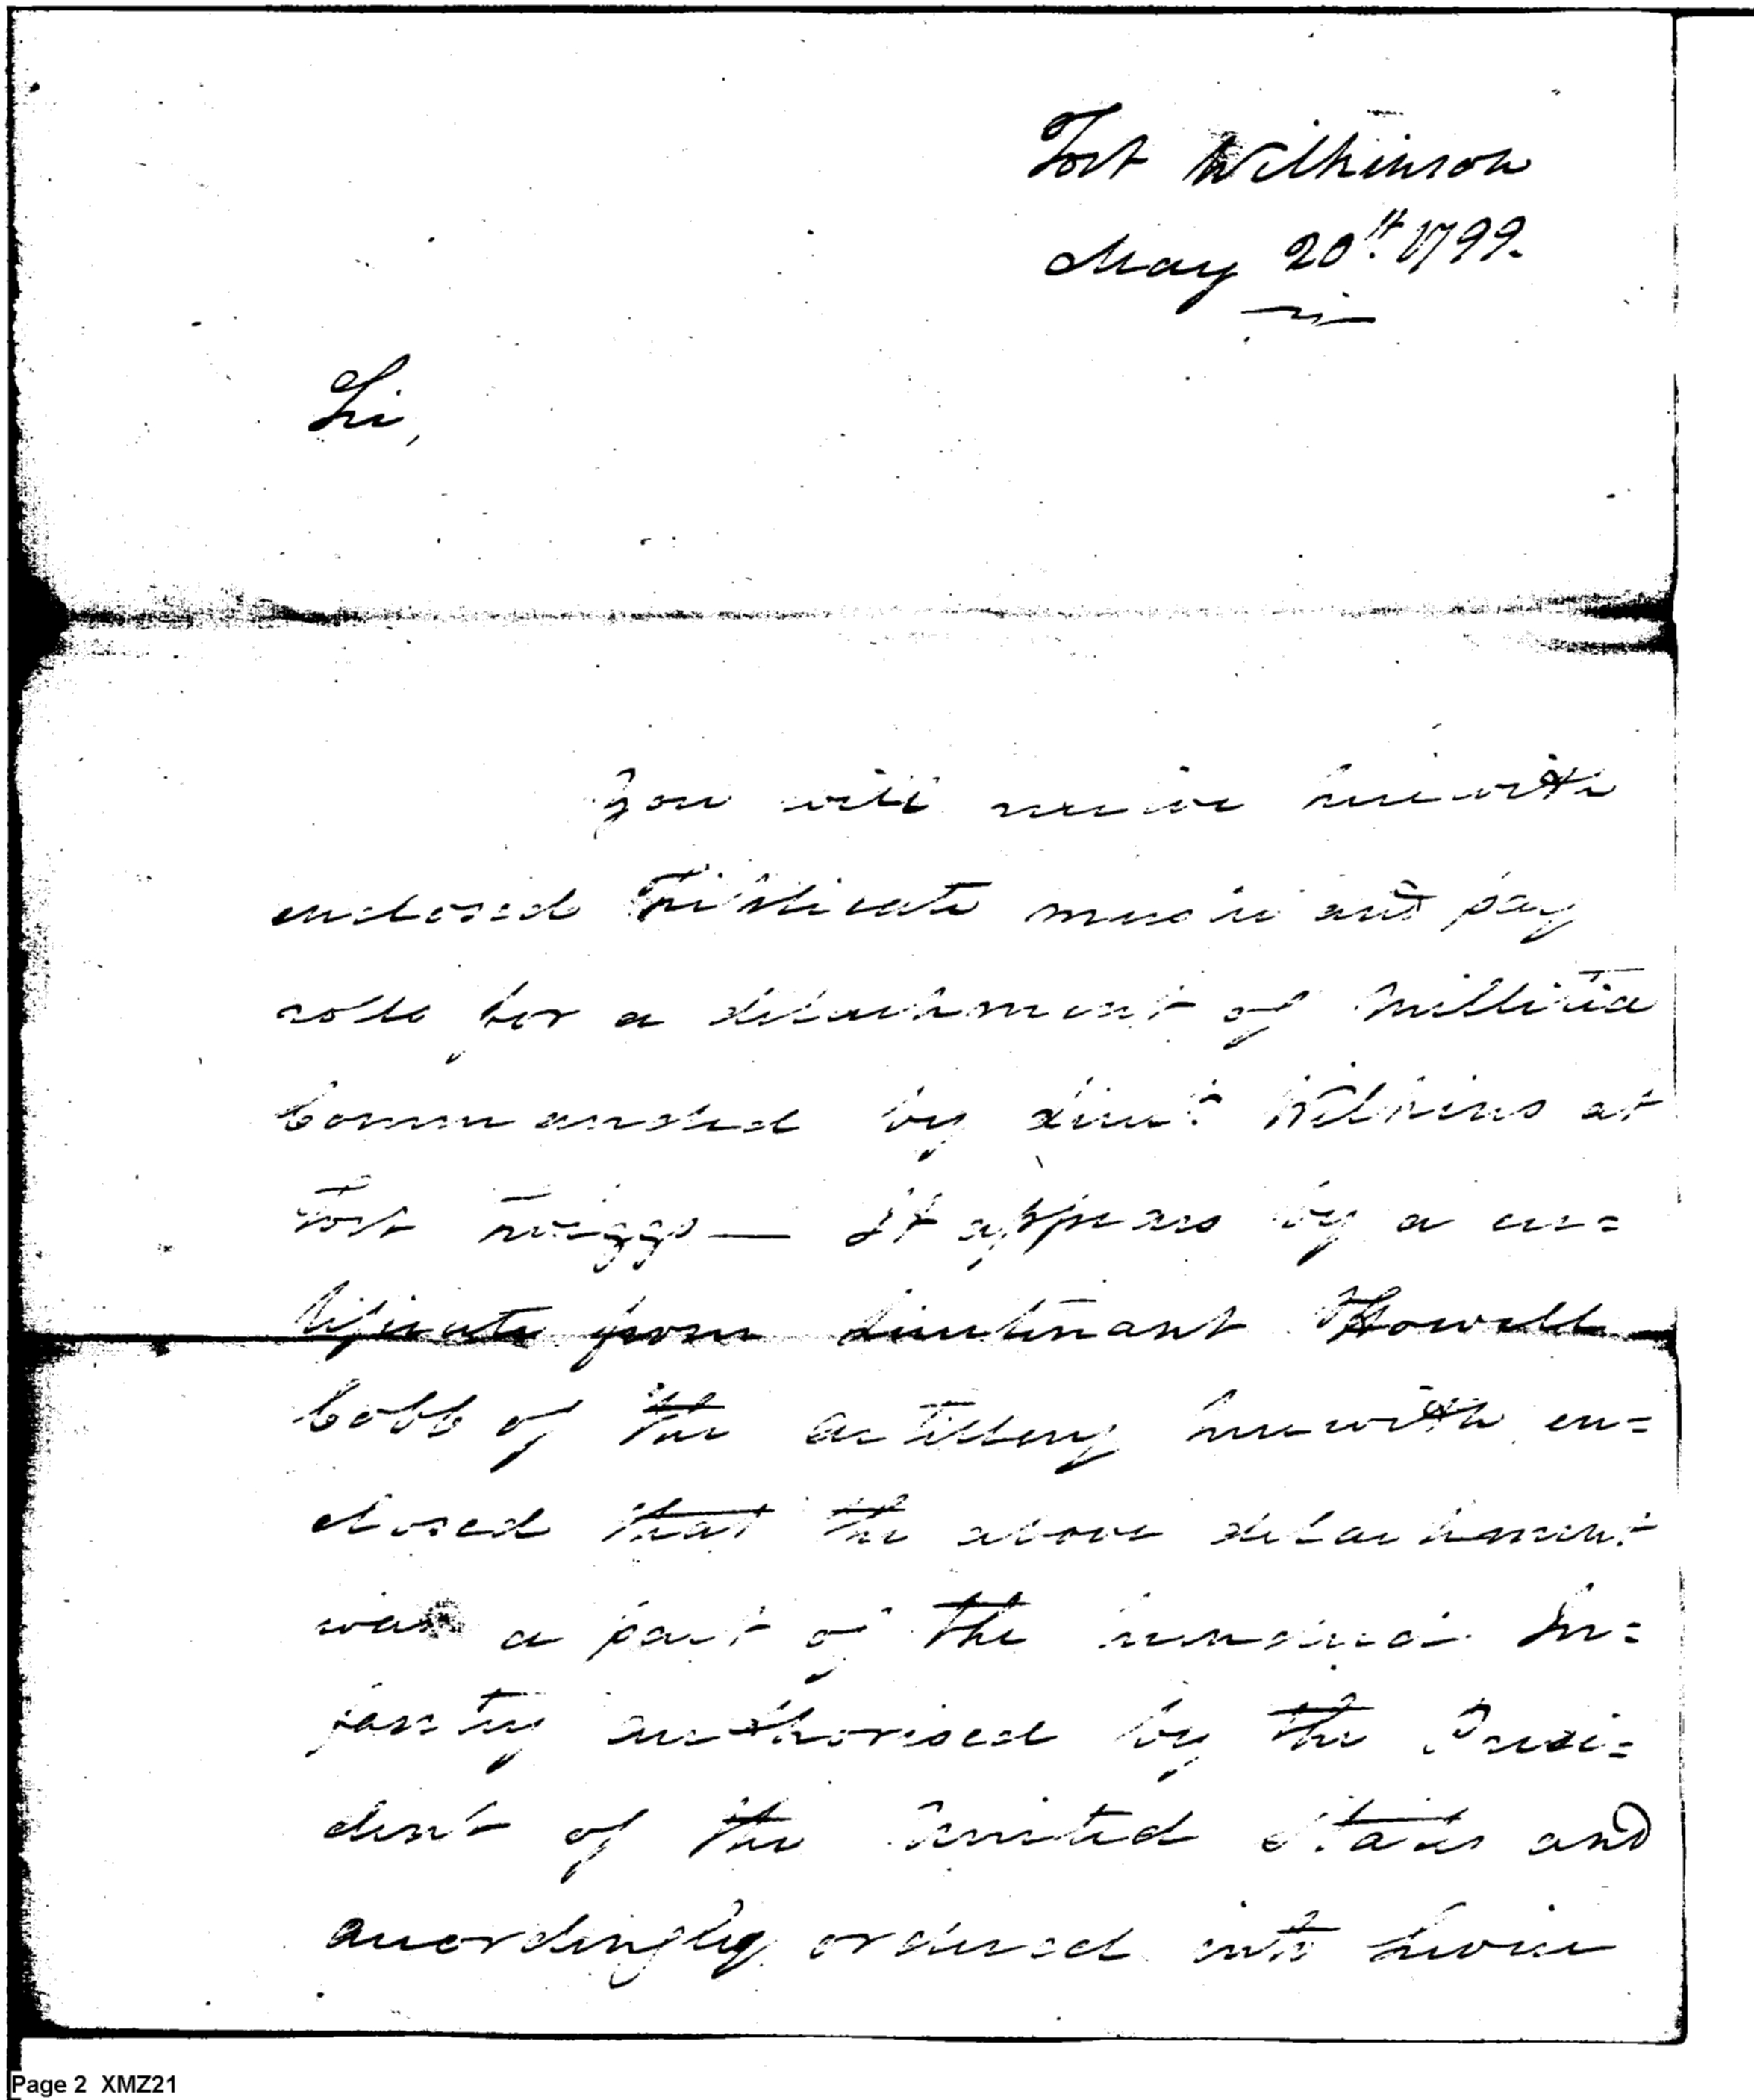 Fort Wilkinson
May 20th. 1799.
Sir,
You will receive herewith
enclosed Triplicate muster and pay
rolls for a detachment of Millitia
Commanded by Lieut. Wilkins at
Fort Twiggs — It appears by a cer=
tificate from Lieutenant Howell
Cobb of the artillery herewith en=
closed that the above detachment
was a part of the hundred In=
fantry authorised by the Presi=
dent of the United States and
accordingly ordered into service
Page 2 XMZ21